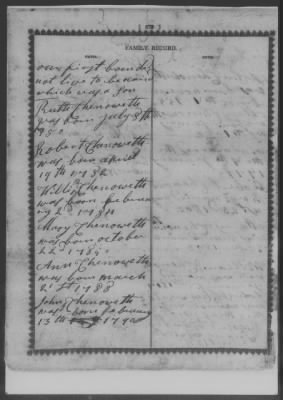 FAMILY RECORD.
our first born did
not live to be named
which was a son
Ruth Chenoweth
was born July 8th
178
Robert Chenoweth
was born april
19th 1782
Willi Chenoweth
was born februa
ry 2 178
Mary Chenoweth
was born october
22 178
Ann Chenoweth
was born march
2 1st 1788
John Chenoweth
was born february
13th 1790